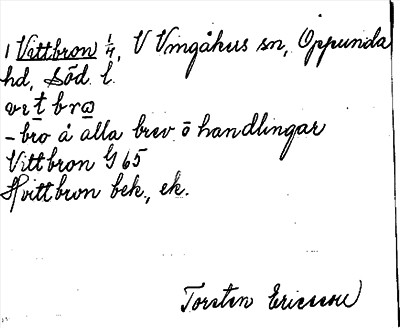 1 Vittbron 1/4, V Vingåkers sn, Oppunda
hd, Söd. l.
vit bro
-bro å alla brev o handlingar
Vittbron G 65
Hvittbron bek., ek.
Torsten Ericsson